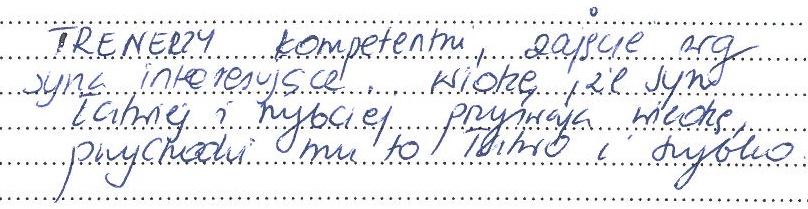 TRENERZY kompetentni, zajęcie wg
syna interesujące. widzę, że syn
łatwiej i szybciej przyswaja wiedzę,
przychodzi mu to łatwo i szybko